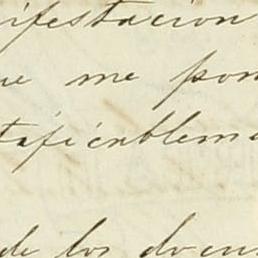 ifestacion
ue me pon
tafienblem
de los docu